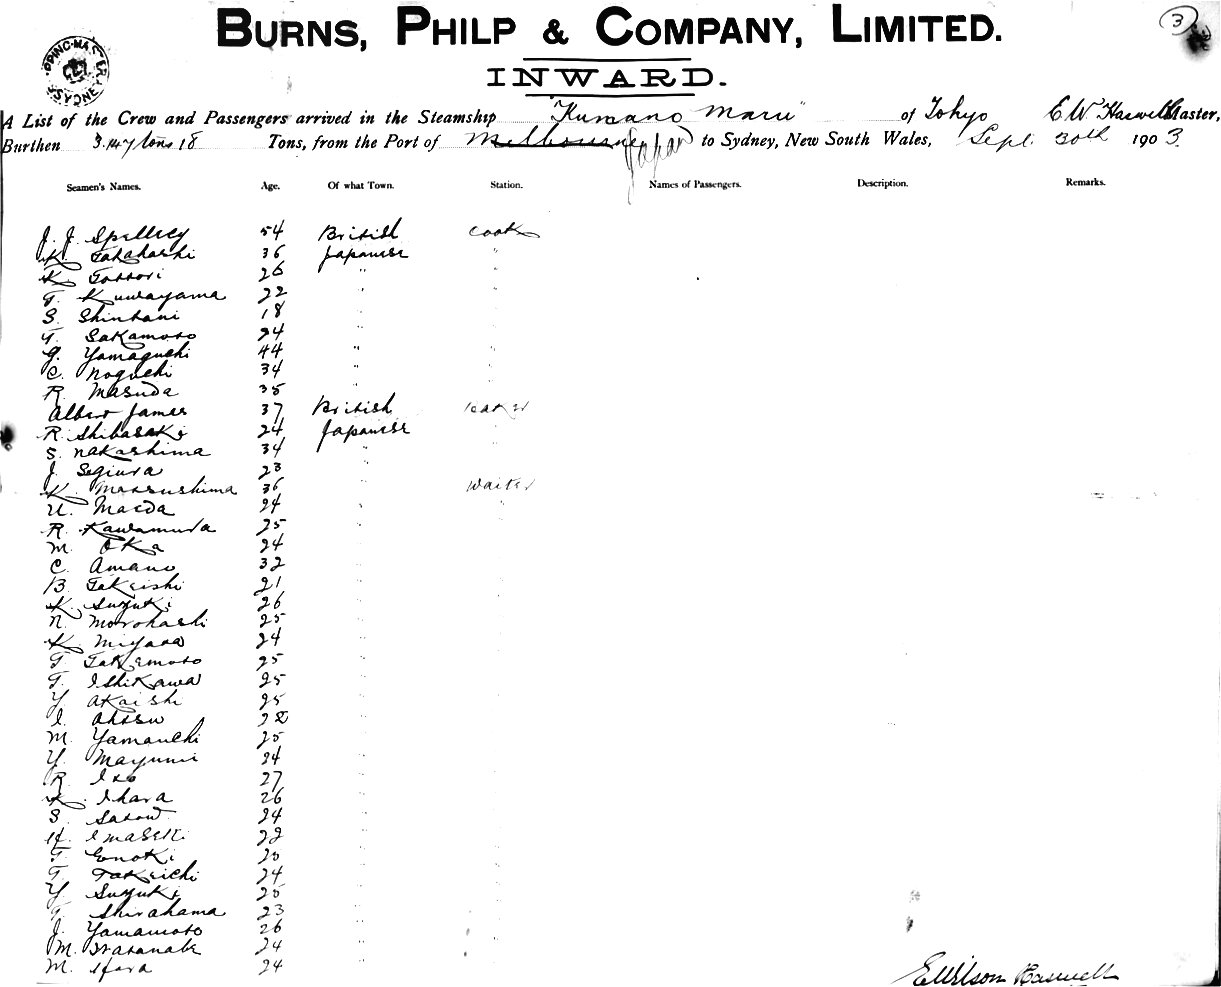 3
BURNS, PHILP & COMPANY, LIMITED.
INWARD.
A List of the Crew and Passengers arrived in the Steamship "Kumano Maru" of Tokyo E W Haswell Master,
Burthen 3.147 tons 18 Tons, from the Port of Melbourne Japan to Sydney, New South Wales, Sept. 30th 1903.
Seamen's Names. Age. Of what Town. Station. Names of Passengers. Description. Remarks.
J. J. Spellicy 54 British Cook
K Takahashi 36 Japanese "
K Tottori 26 " "
T. Kuwayama 22 " "
S. Shintani 18 " "
T. Sakamoto 24 " "
G. Yamaguchi 44 " "
C. Noguchi 34 " "
R. Masuda 35 " "
Albert James 37 British Baker
R. Shibasaki 24 Japanese "
S. Nakashima 34 " "
J. Segiura 23 " "
K. Matsushima 36 " Waiter
U. Maeda 24 " "
R. Kawamura 25 " "
M. Oka 24 " "
C. Amano 32 " "
B Takeishi 21 " "
K. Suzuki 26 " "
N. Morohashi 25 " "
K. Miyata 24 " "
T. Takemoto 25 " "
T. Ishikawa 25 " "
Y Akaishi 25 " "
I. Ohtsu 22 " "
M. Yamauchi 25 " "
Y. Mayumi 24 " "
R. Ito 27 " "
K. Ihara 26 " "
S. Satow 24 " "
H. Imaseki 22 " "
T. Enoki 20 " "
T. Takeichi 24 " "
Y Suzuki 20 " "
Shirahama 23 " "
J. Yamamoto 26 " "
M. Watanabe 24 " "
M. 24 " "
E Wilson Haswell